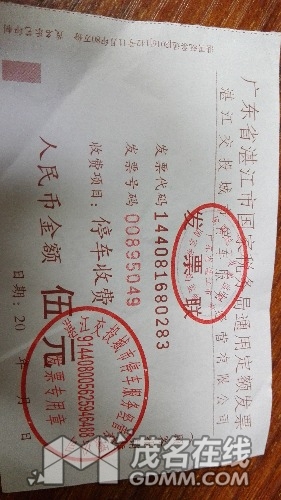 广东省湛江市国家税务局通用定额发票
湛江交投城市停车服务经营有限公司
发票联
发票代码 144081680283
发票号码 00895049
收费项目：停车收费
人民币金额 伍元
日期：20 年 月 日
交投城市停车服务经营
91440800562594648
发票专用章
茂名在线
GDMM.COM